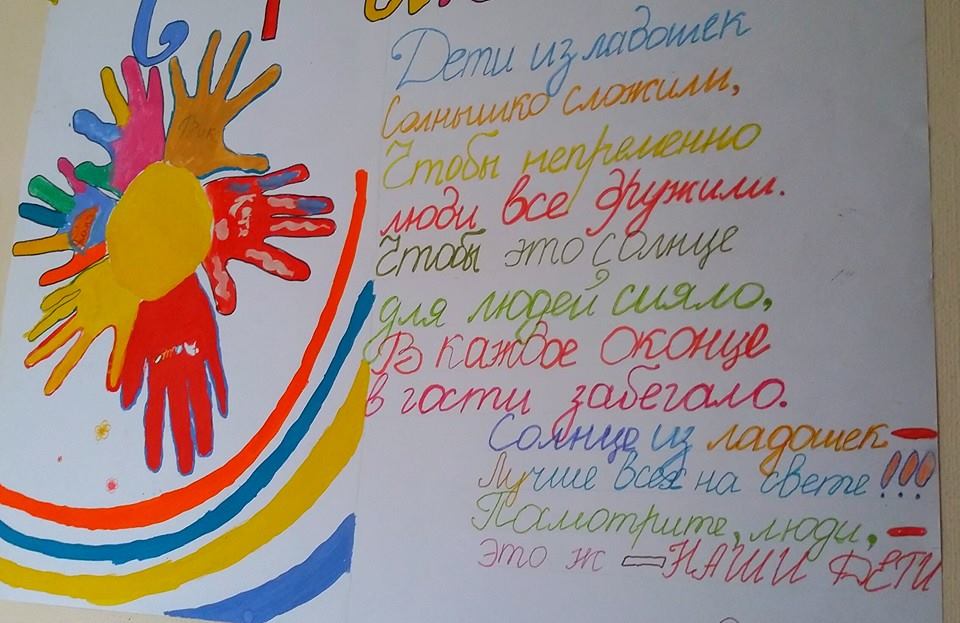 Дети из ладошек
Солнышко сложили,
Чтобы непременно
люди все дружили.
Чтобы это солнце
для людей сияло,
В каждое оконце
в гости забегало.
Солнце из ладошек –
Лучше всех на свете!!!
Посмотрите, люди, –
это ж – НАШИ ДЕТИ
Катя